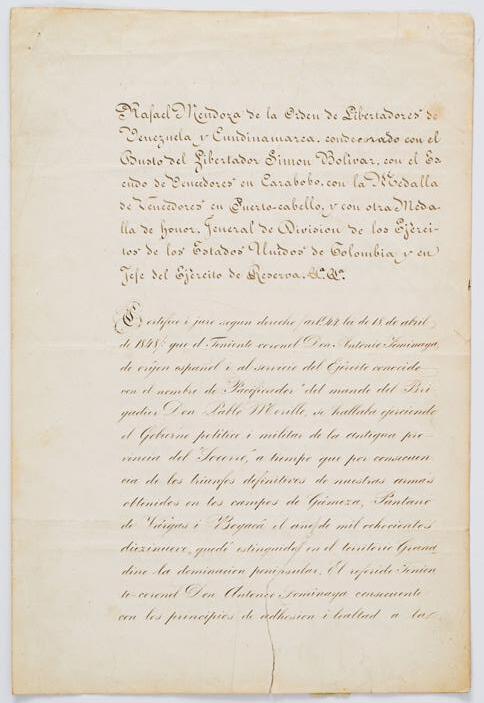 Rafael Mendoza de la Orden de Libertadores de
Venezuela y Cundinamarca, condecorado con el
Busto del Libertador Simon Bolivar, con el Es
cudo de Vencedores en Carabobo, con la Medalla
de Vencedores en Puerto-cabello, y con otra Meda-
lla de honor, Jeneral de Division de los Ejérci-
tos de los Estados Unidos de Colombia y en
Jefe del Ejército de Reserva, &a. &a.
Certifico i juro segun derecho (artº 47 lei de 18 de abril
de 1848) que el Teniente coronel Don Antonio Fominaya,
de oríjen español i al servicio del Ejército conocido
con el nombre de "Pacificador" del mando del Bri
gadier Don Pablo Morillo, se hallaba ejerciendo
el Gobierno político i militar de la antigua pro-
vincia del "Socorro," a tiempo que por consecuen-
cia de los triunfos definitivos de nuestras armas
obtenidos en los campos de Gámeza, Pantano
de Várgas i Bogacá el año de mil ochocientos
diezinueve, quedó estinguida en el territorio Grana
dino la dominacion peninsular. El referido Tenien
te-coronel Don Antonio Fominaya consecuente
con los principios de adhesion i lealtad a la